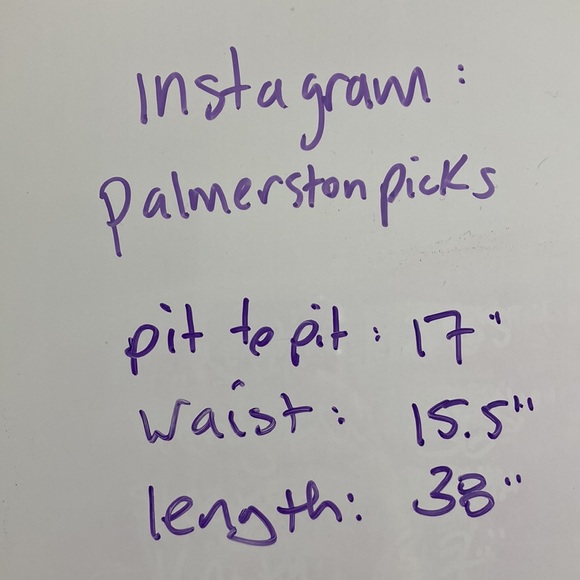 Instagram:
Palmerstonpicks
pit to pit: 17"
waist: 15.5"
length: 38"